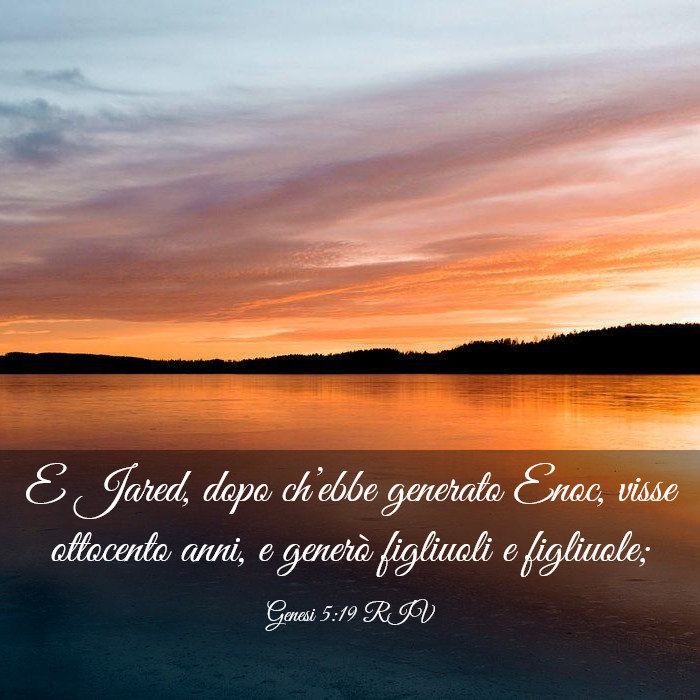 E Jared, dopo ch'ebbe generato Enoc, visse
ottocento anni, e generò figliuoli e figliuole;
Genesi 5:19 RIV